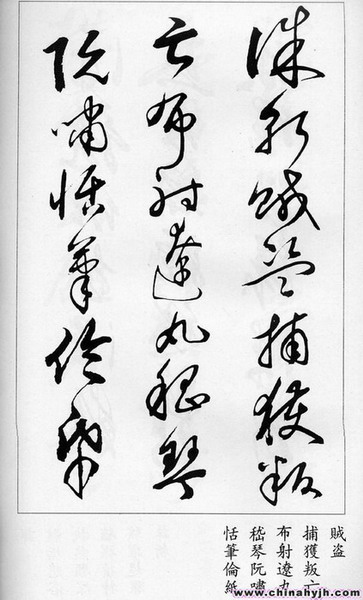 誅斬賊盜捕獲叛
亡布射遼丸嵇琴
阮嘯恬筆倫帋
賊盜
捕獲叛亡
布射遼丸
嵇琴阮嘯
恬筆倫紙
www.chinahyjh.com